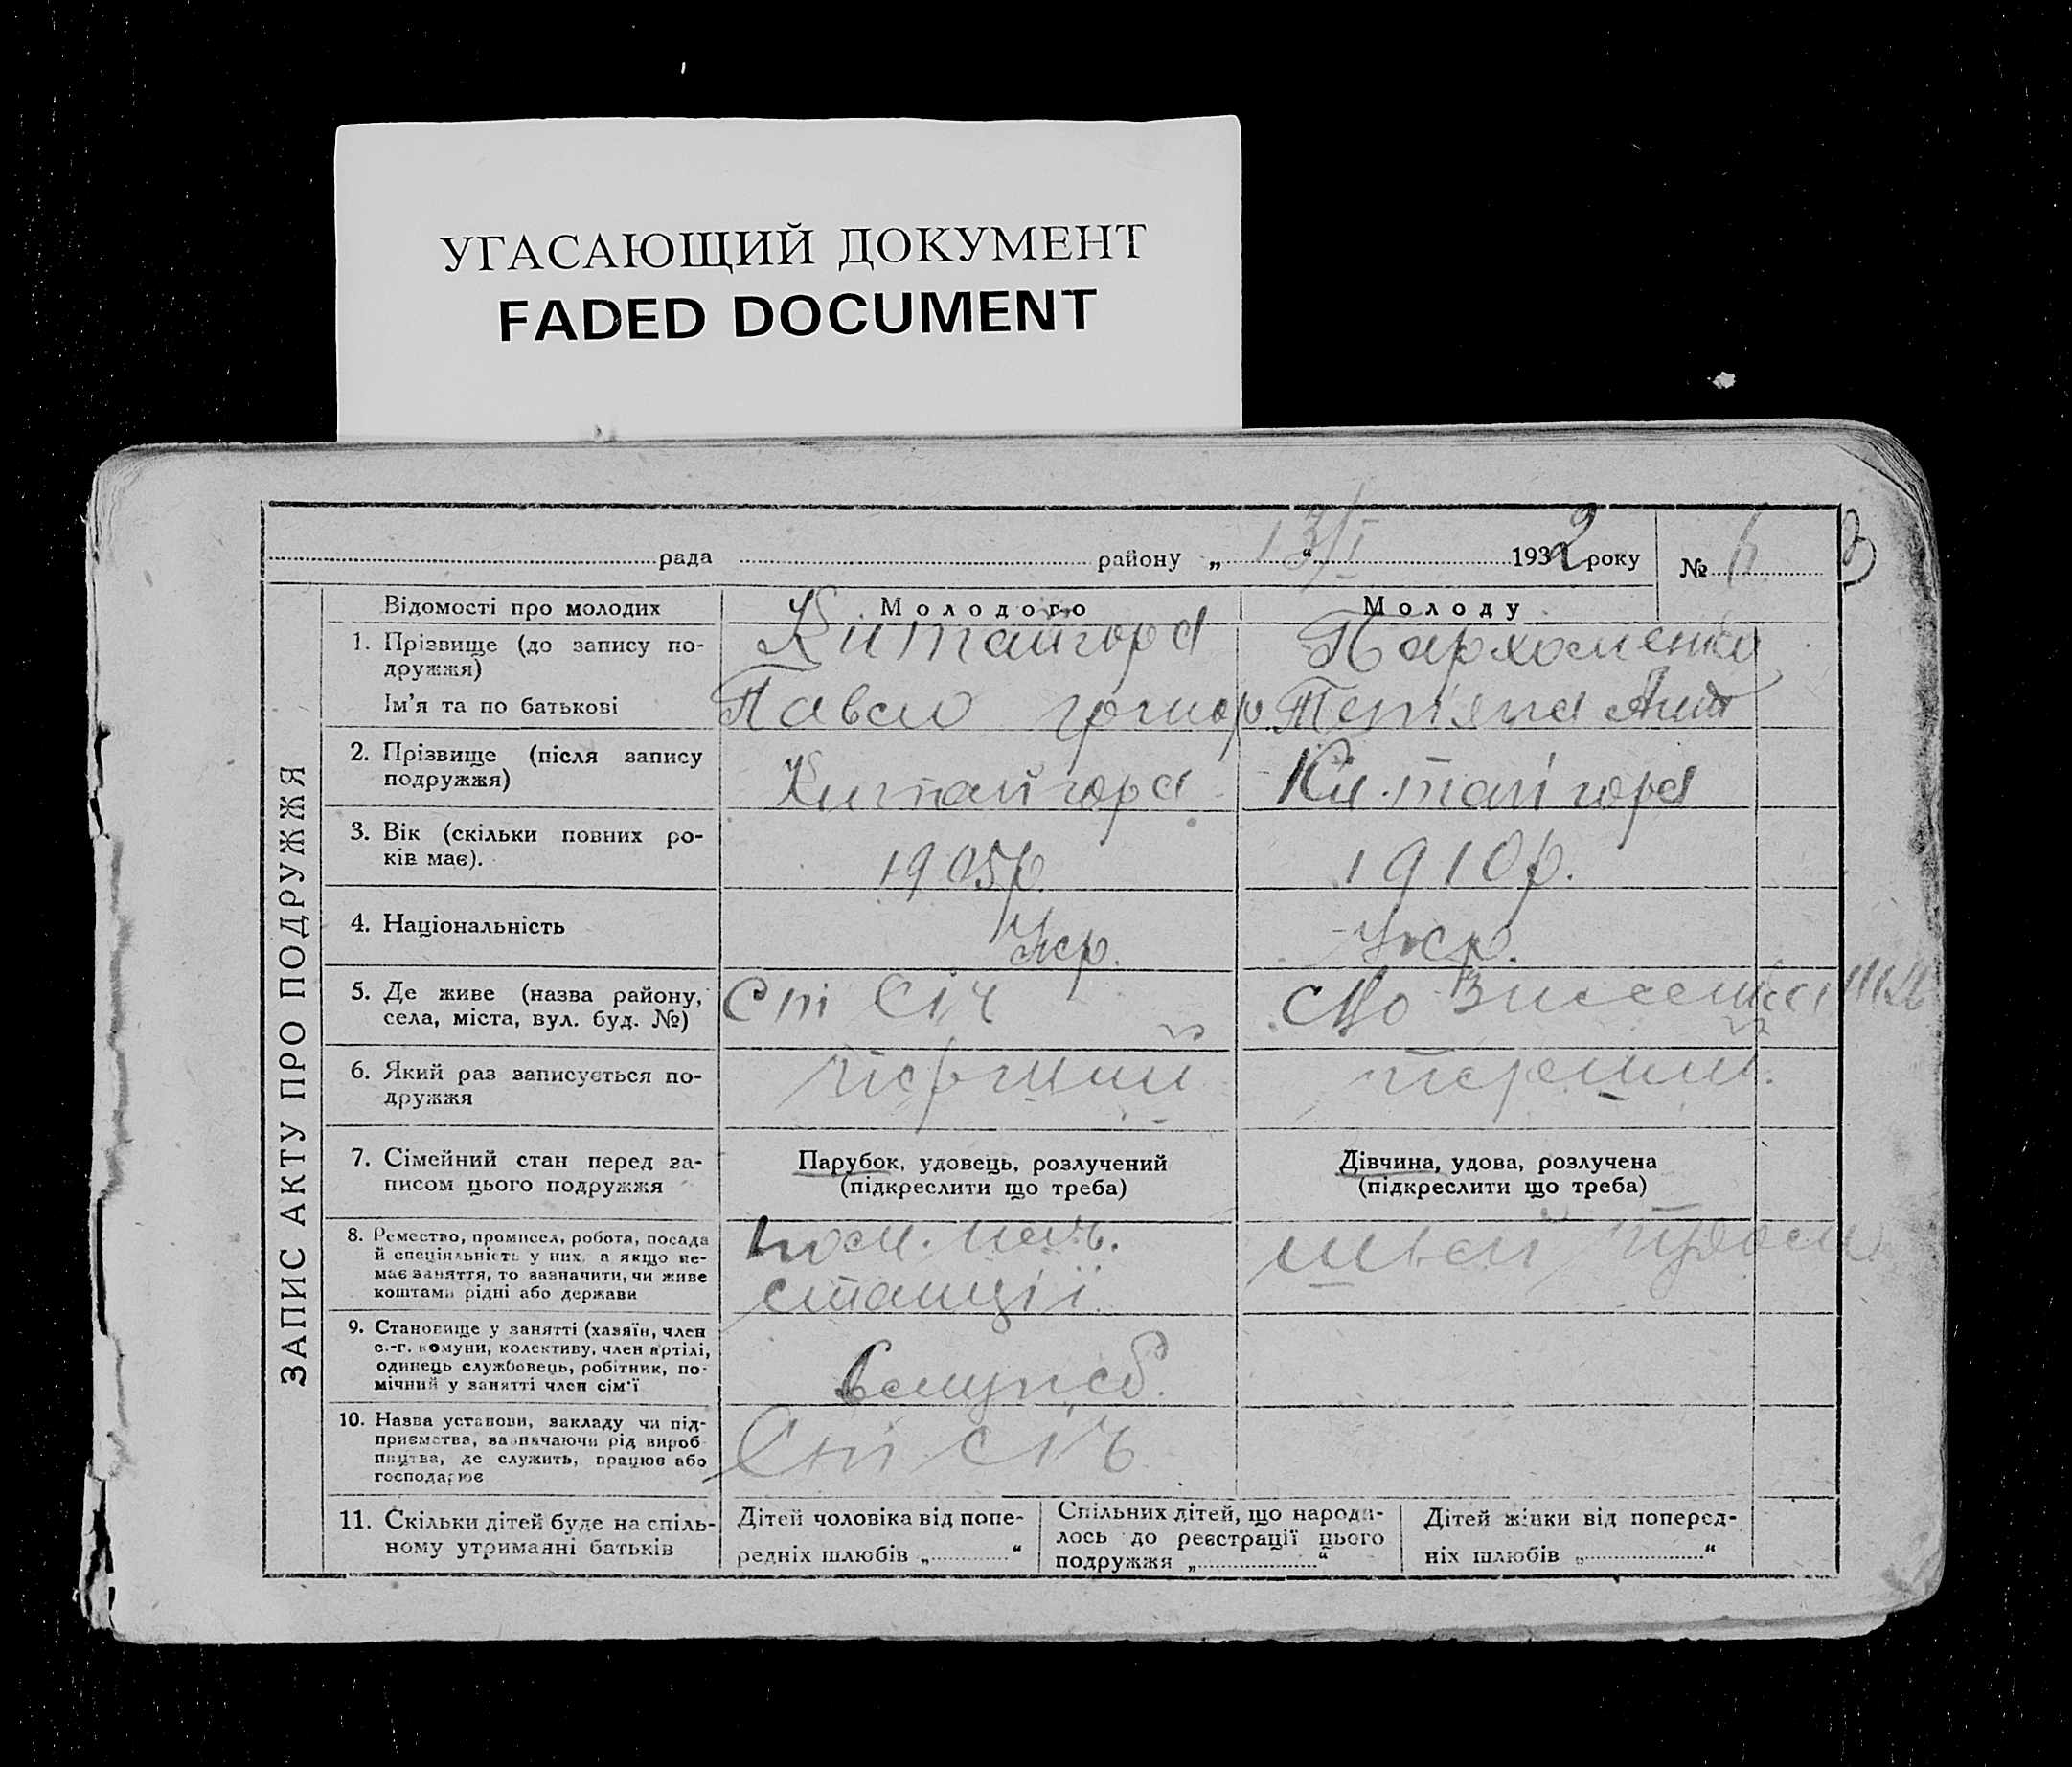 УГАСАЮЩИЙ ДОКУМЕНТ
FADED DOCUMENT
рада району „13/I“ 1932 року № 3
ЗАПИС АКТУ ПРО ПОДРУЖЖЯ
Відомості про молодих
Молодого
Молоду
1. Прізвище (до запису по-
дружжя)
Китайгора
Пархоменко
Ім'я та по батькові
Павло Григор
Тетяна
2. Прізвище (після запису
подружжя)
Китайгора
Китайгора
3. Вік (скільки повних ро-
ків має).
1905р.
1910р.
4. Національність
Укр.
Укр.
5. Де живе (назва району,
села, міста, вул. буд. №)
Ст Січ
6. Який раз записується по-
дружжя
перший
перший.
7. Сімейний стан перед за-
писом цього подружжя
Парубок, удовець, розлучений
(підкреслити що треба)
Дівчина, удова, розлучена
(підкреслити що треба)
8. Ремество, промисел, робота, посада
й спеціяльність у них, а якщо не-
має заняття, то зазначити, чи живе
коштами рідні або держави
пом. нач.
станції
9. Становище у занятті (хазяїн, член
с.-г. комуни, колективу, член артілі,
одинець службовець, робітник, по-
мічний у занятті член сім'ї
10. Назва установи, закладу чи під-
приємства, зазначаючи рід вироб-
ництва, де служить, працює або
господарює
Ст Січ
11. Скільки дітей буде на спіль-
ному утриманні батьків
Дітей чоловіка від попе-
редніх шлюбів „ “
Спільних дітей, що народи-
лось до реєстрації цього
подружжя „ “
Дітей жінки від поперед-
ніх шлюбів „ “